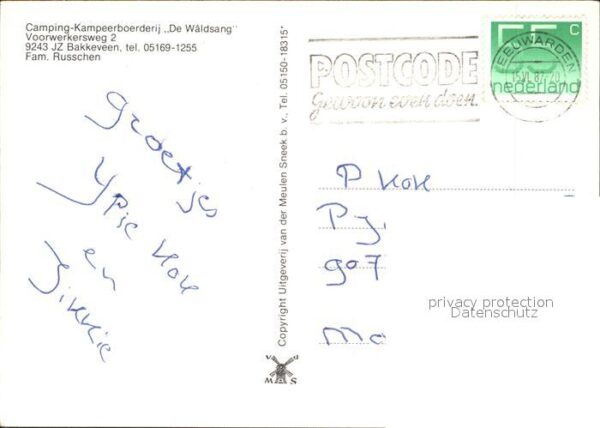 Camping-Kampeerboerderij „De Wâldsang"
Voorwerkersweg 2
9243 JZ Bakkeveen, tel. 05169-1255
Fam. Russchen
groetjes
Ypie Kok
en
Sikkie
Copyright Uitgeverij van der Meulen Sneek b. v., Tel. 05150-18315*
V U
M S
POSTCODE
Gewoon even doen.
LEEUWARDEN
55 C
nederland
P Kok
Pj.
907
Ma
privacy protection
Datenschutz